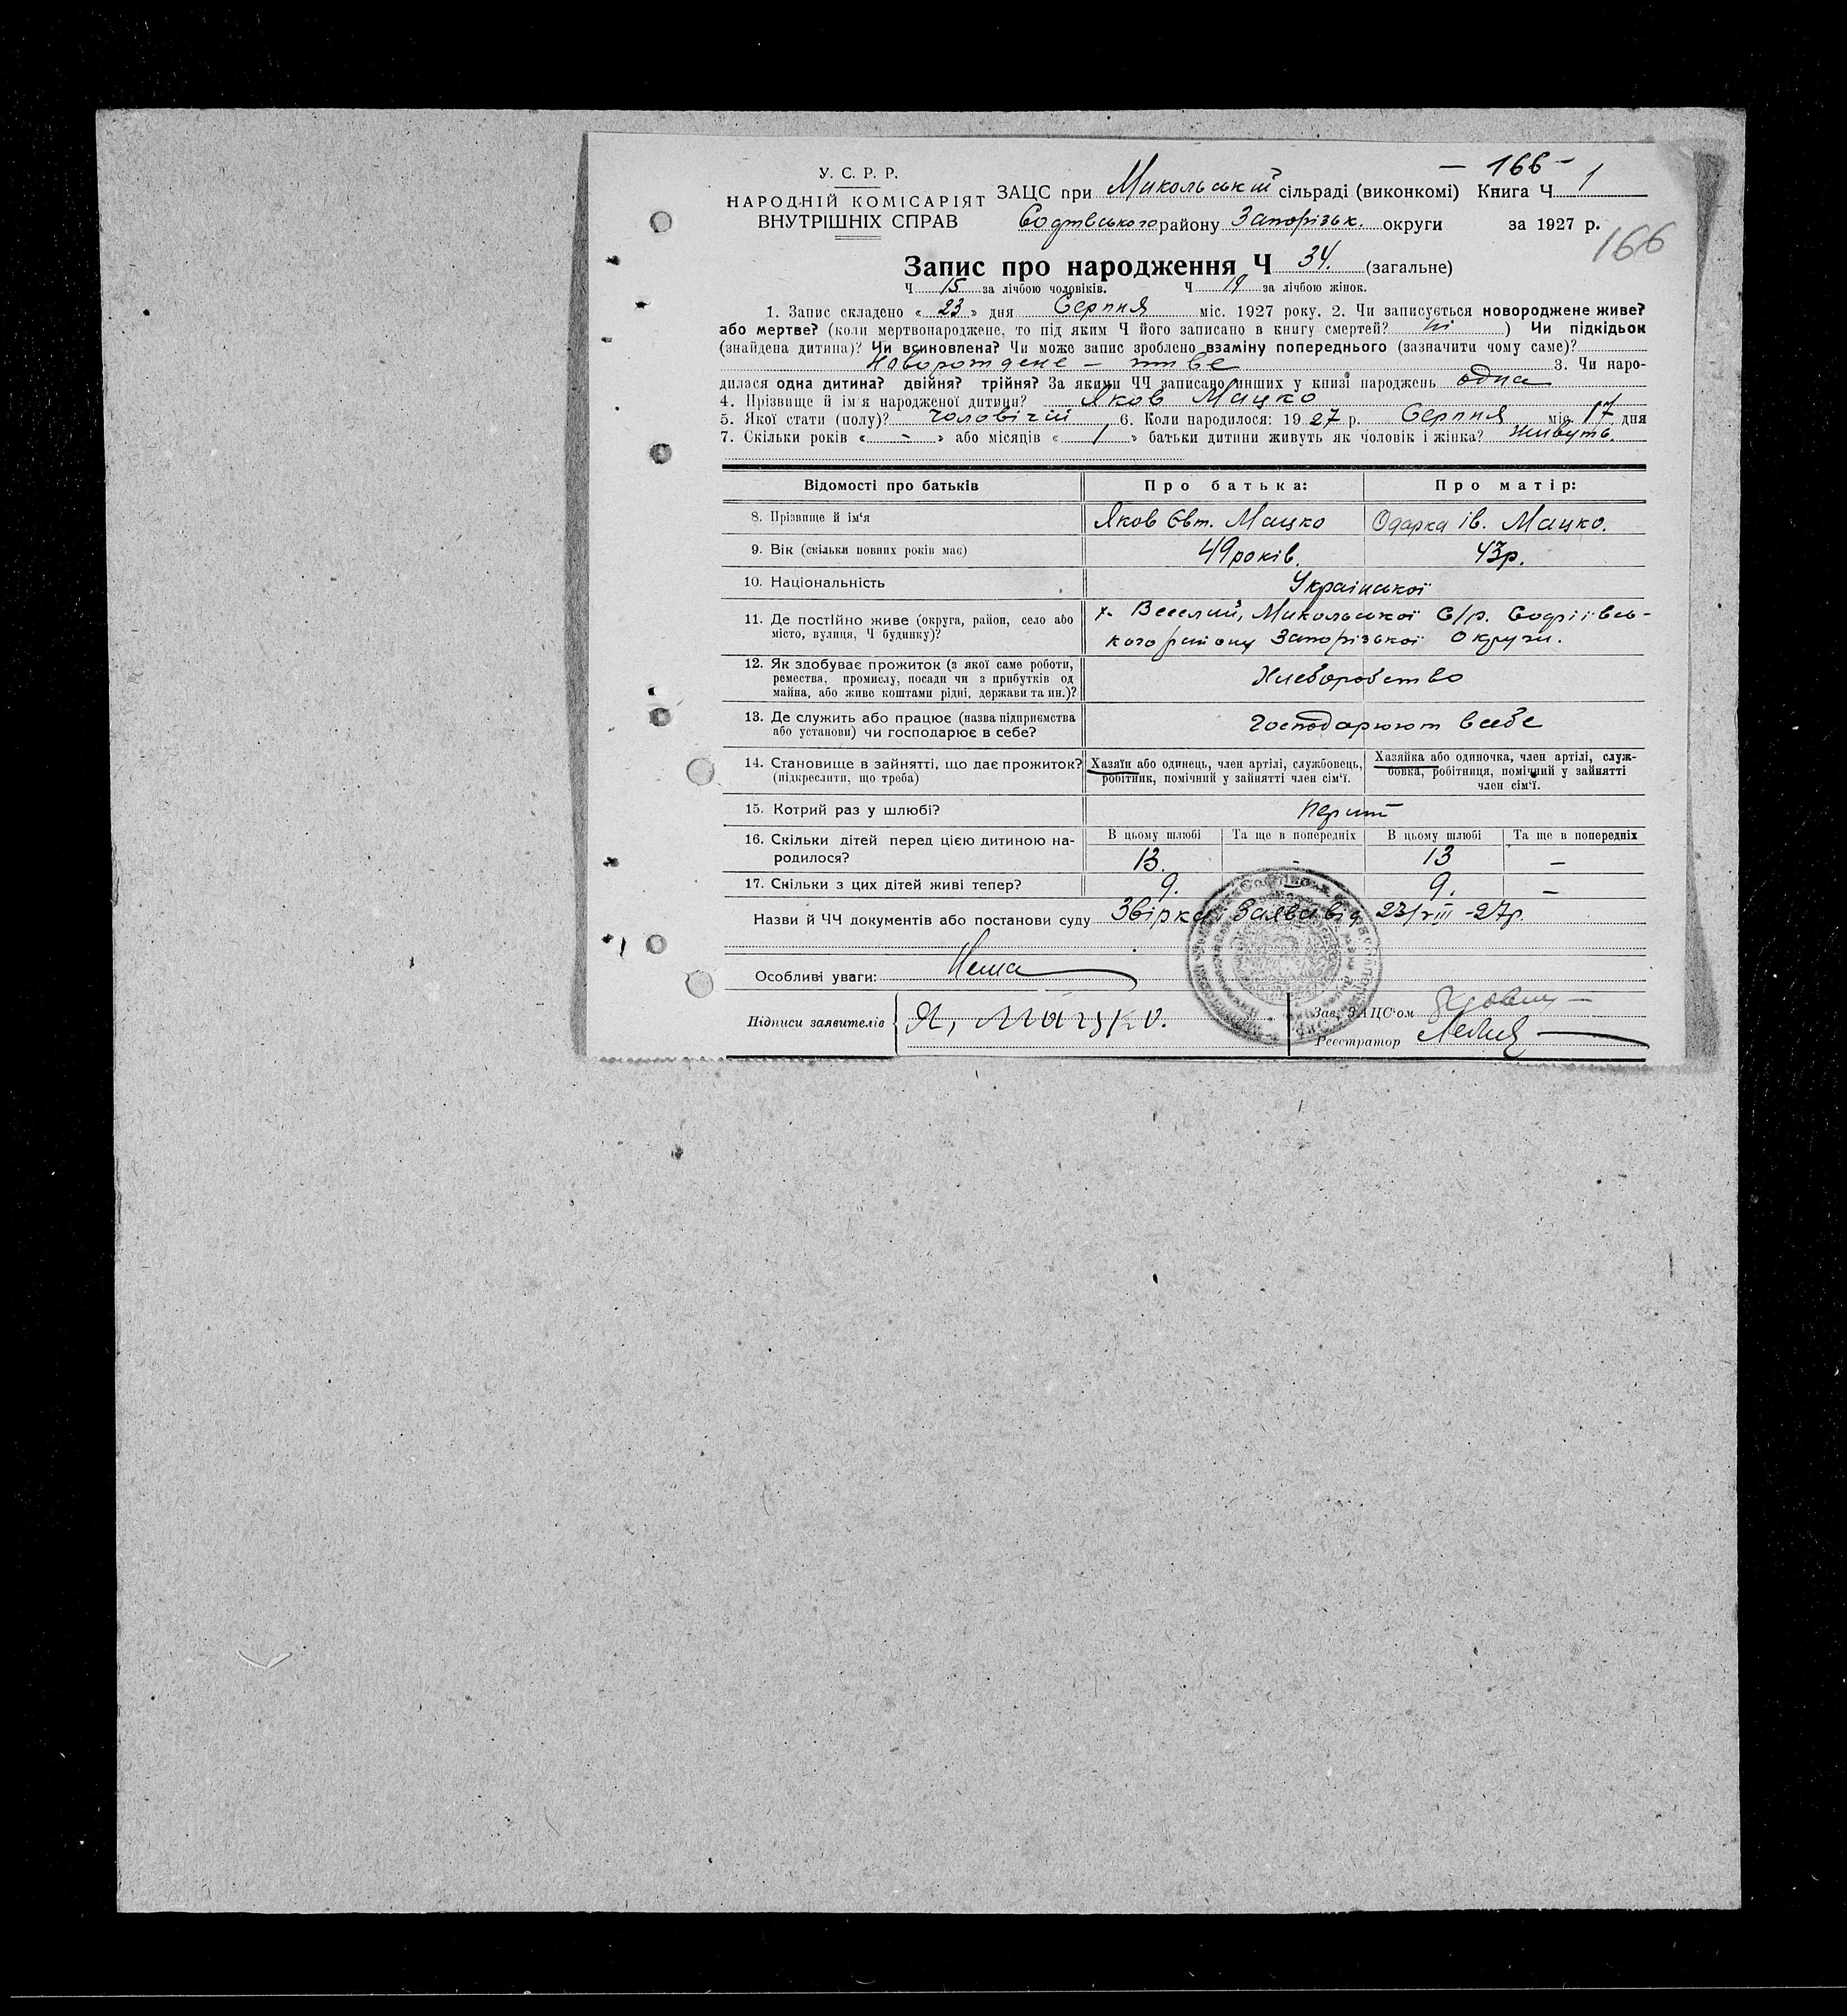 У. С. Р. Р.
НАРОДНІЙ КОМІСАРІЯТ
ВНУТРІШНІХ СПРАВ
— 166 —
ЗАЦС при Микольській сільраді (виконкомі) Книга Ч 1
району Запорізьк. округи за 1927 р.
166
Запис про народження Ч 34. (загальне)
Ч 15 за лічбою чоловіків. Ч 19 за лічбою жінок.
1. Запис складено « 23 » дня Серпня міс. 1927 року. 2. Чи записується новороджене живе?
або мертве? (коли мертвонароджене, то під яким Ч його записано в книгу смертей? ні ) Чи підкідьок
(знайдена дитина)? Чи всиновлена? Чи може запис зроблено взаміну попереднього (зазначити чому саме)?
3. Чи наро-
дилася одна дитина? двійня? трійня? За якими ЧЧ записано инших у книзі народжень одна
4. Прізвище й ім'я народженої дитини? Яков Мацко
5. Якої статі (полу)? чоловічій 6. Коли народилося: 1927 р. Серпня міс. 17 дня
7. Скільки років « - » або місяців « 1 » батьки дитини живуть як чоловік і жінка? живуть.
Відомості про батьків Про батька: Про матір:
8. Прізвище й ім'я Яков Євт. Мацко Одарка Ів. Мацко.
9. Вік (скільки повних років має) 49 років. 43 р.
10. Національність Української
11. Де постійно живе (округа, район, село або х. Веселий, Микольської С/р. Софіївсь-
місто, вулиця, Ч будинку)? кого району Запорізької Округи.
12. Як здобуває прожиток (з якої саме роботи,
ремества, промислу, посади чи з прибутків од Хлеборобство
майна, або живе коштами рідні, держави та ин.)?
13. Де служить або працює (назва підприємства господарюют в себе
або установи) чи господарює в себе?
14. Становище в зайнятті, що дає прожиток? Хазяїн або одинець, член артілі, службовець, Хазяйка або одиночка, член артілі, служ-
(підкреслити, що треба) робітник, помічний у зайнятті член сім'ї. бовка, робітниця, помічний у зайнятті
член сім'ї.
15. Котрий раз у шлюбі? перший
16. Скільки дітей перед цією дитиною на- В цьому шлюбі Та ще в попередніх В цьому шлюбі Та ще в попередніх
родилося? 13. - 13 —
17. Скільки з цих дітей живі тепер? 9. — 9. —
Назви й ЧЧ документів або постанови суду Звірка Заява від 23/VIII -27р.
Особливі уваги: Нема
Підписи заявителів Я, Мацко.
Зав. ЗАЦС'ом
Реєстратор